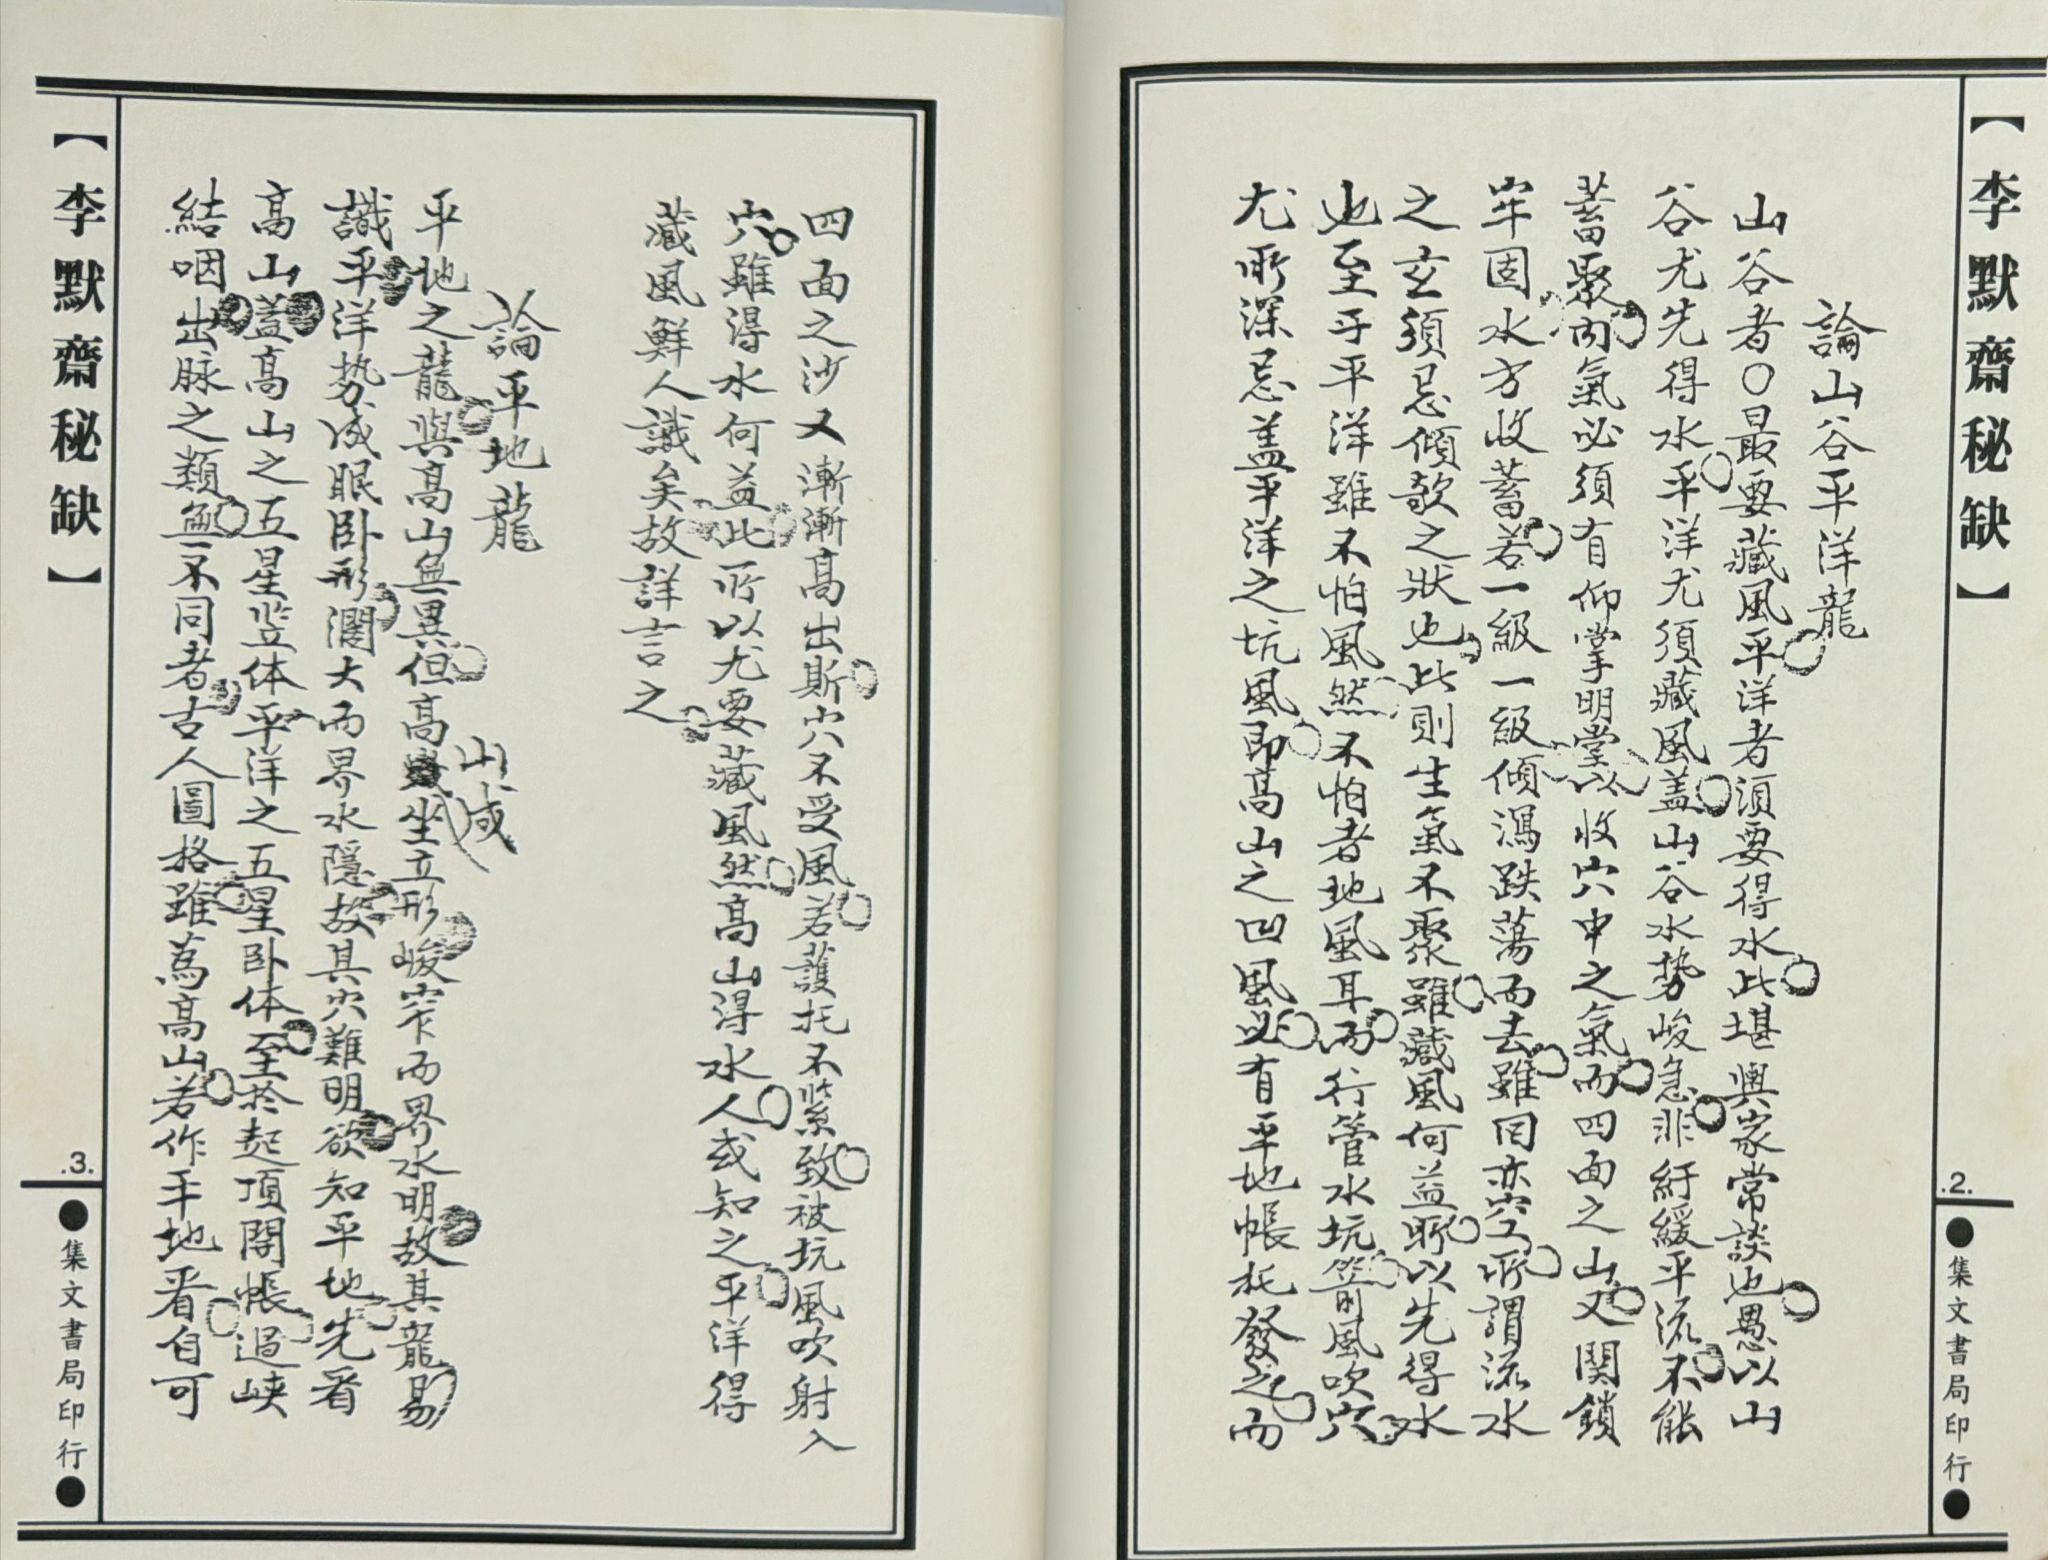 【李默齋秘缺】
論山谷平洋龍
山谷者○最要藏風平洋者須要得水此堪輿家常談也愚以山
谷尤先得水平洋尤須藏風盖山谷水势峻急非紆緩平流不能
蓄聚内氣必須有仰掌明堂以收穴中之氣而四面之山又関鎖
牢固水方收蓄若一級一級傾瀉跌蕩而去雖囘亦空所謂流水
之玄須忌傾欹之狀也此則生氣不聚雖藏風何益所以先得水
也至乎平洋雖不怕風然不怕者地風耳而行管水坑箭風吹穴
尤所深忌盖平洋之坑風即高山之凹風必有平地帳托發之而
.2.
●集文書局印行●
四面之沙又漸漸高出斯穴不受風若護托不紧致被坑風吹射入
穴雖得水何益此所以尤要藏風然高山得水人或知之平洋得
藏風鮮人識矣故詳言之
論平地龍
平地之龍與高山無異但高山咸坐立形峻窄而界水明故其龍易
識平洋势成眠卧形濶大而界水隱故其穴難明欲知平地先看
高山盖高山之五星竖体平洋之五星卧体至於起頂開帳過峡
結咽出脉之類無不同者古人圖格雖為高山若作平地看自可
【李默齋秘缺】
.3.
●集文書局印行●